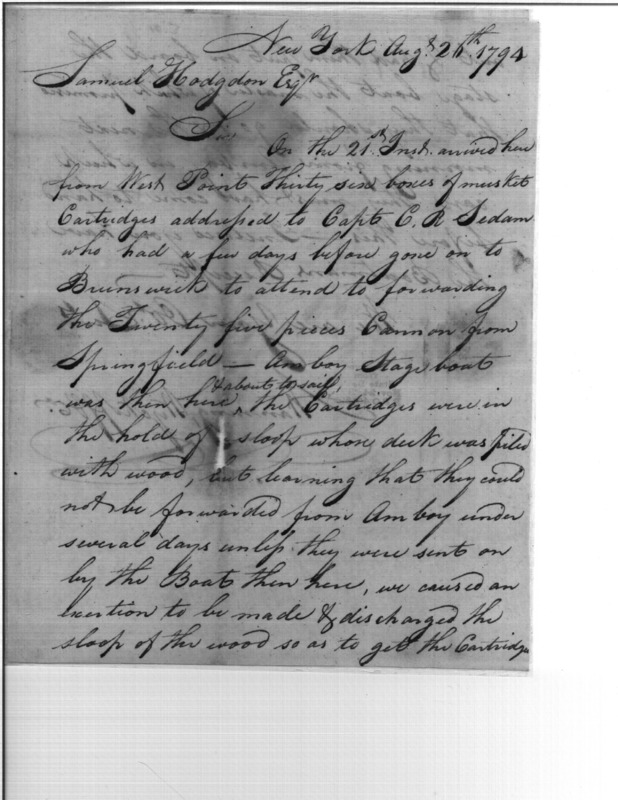 New York Augt. 26th. 1794
Samuel Hodgdon Esqr
Sir
On the 21st. Inst. arrived here
from West Point Thirty six boxes of musket
Cartridges addressed to Capt C. R Sedam
who had a few days before gone on to
Brunswick to attend to forwarding
the Twenty five pieces Cannon from
Springfield — Amboy Stage boat
& about to sail,
was then here, the Cartridges were in
the hold of sloop whose deck was piled
with wood, but learning that they could
not be forwarded from Amboy under
several days unless they were sent on
by the Boat then here, we caused an
exertion to be made & discharged the
sloop of the wood so as to get the Cartridges